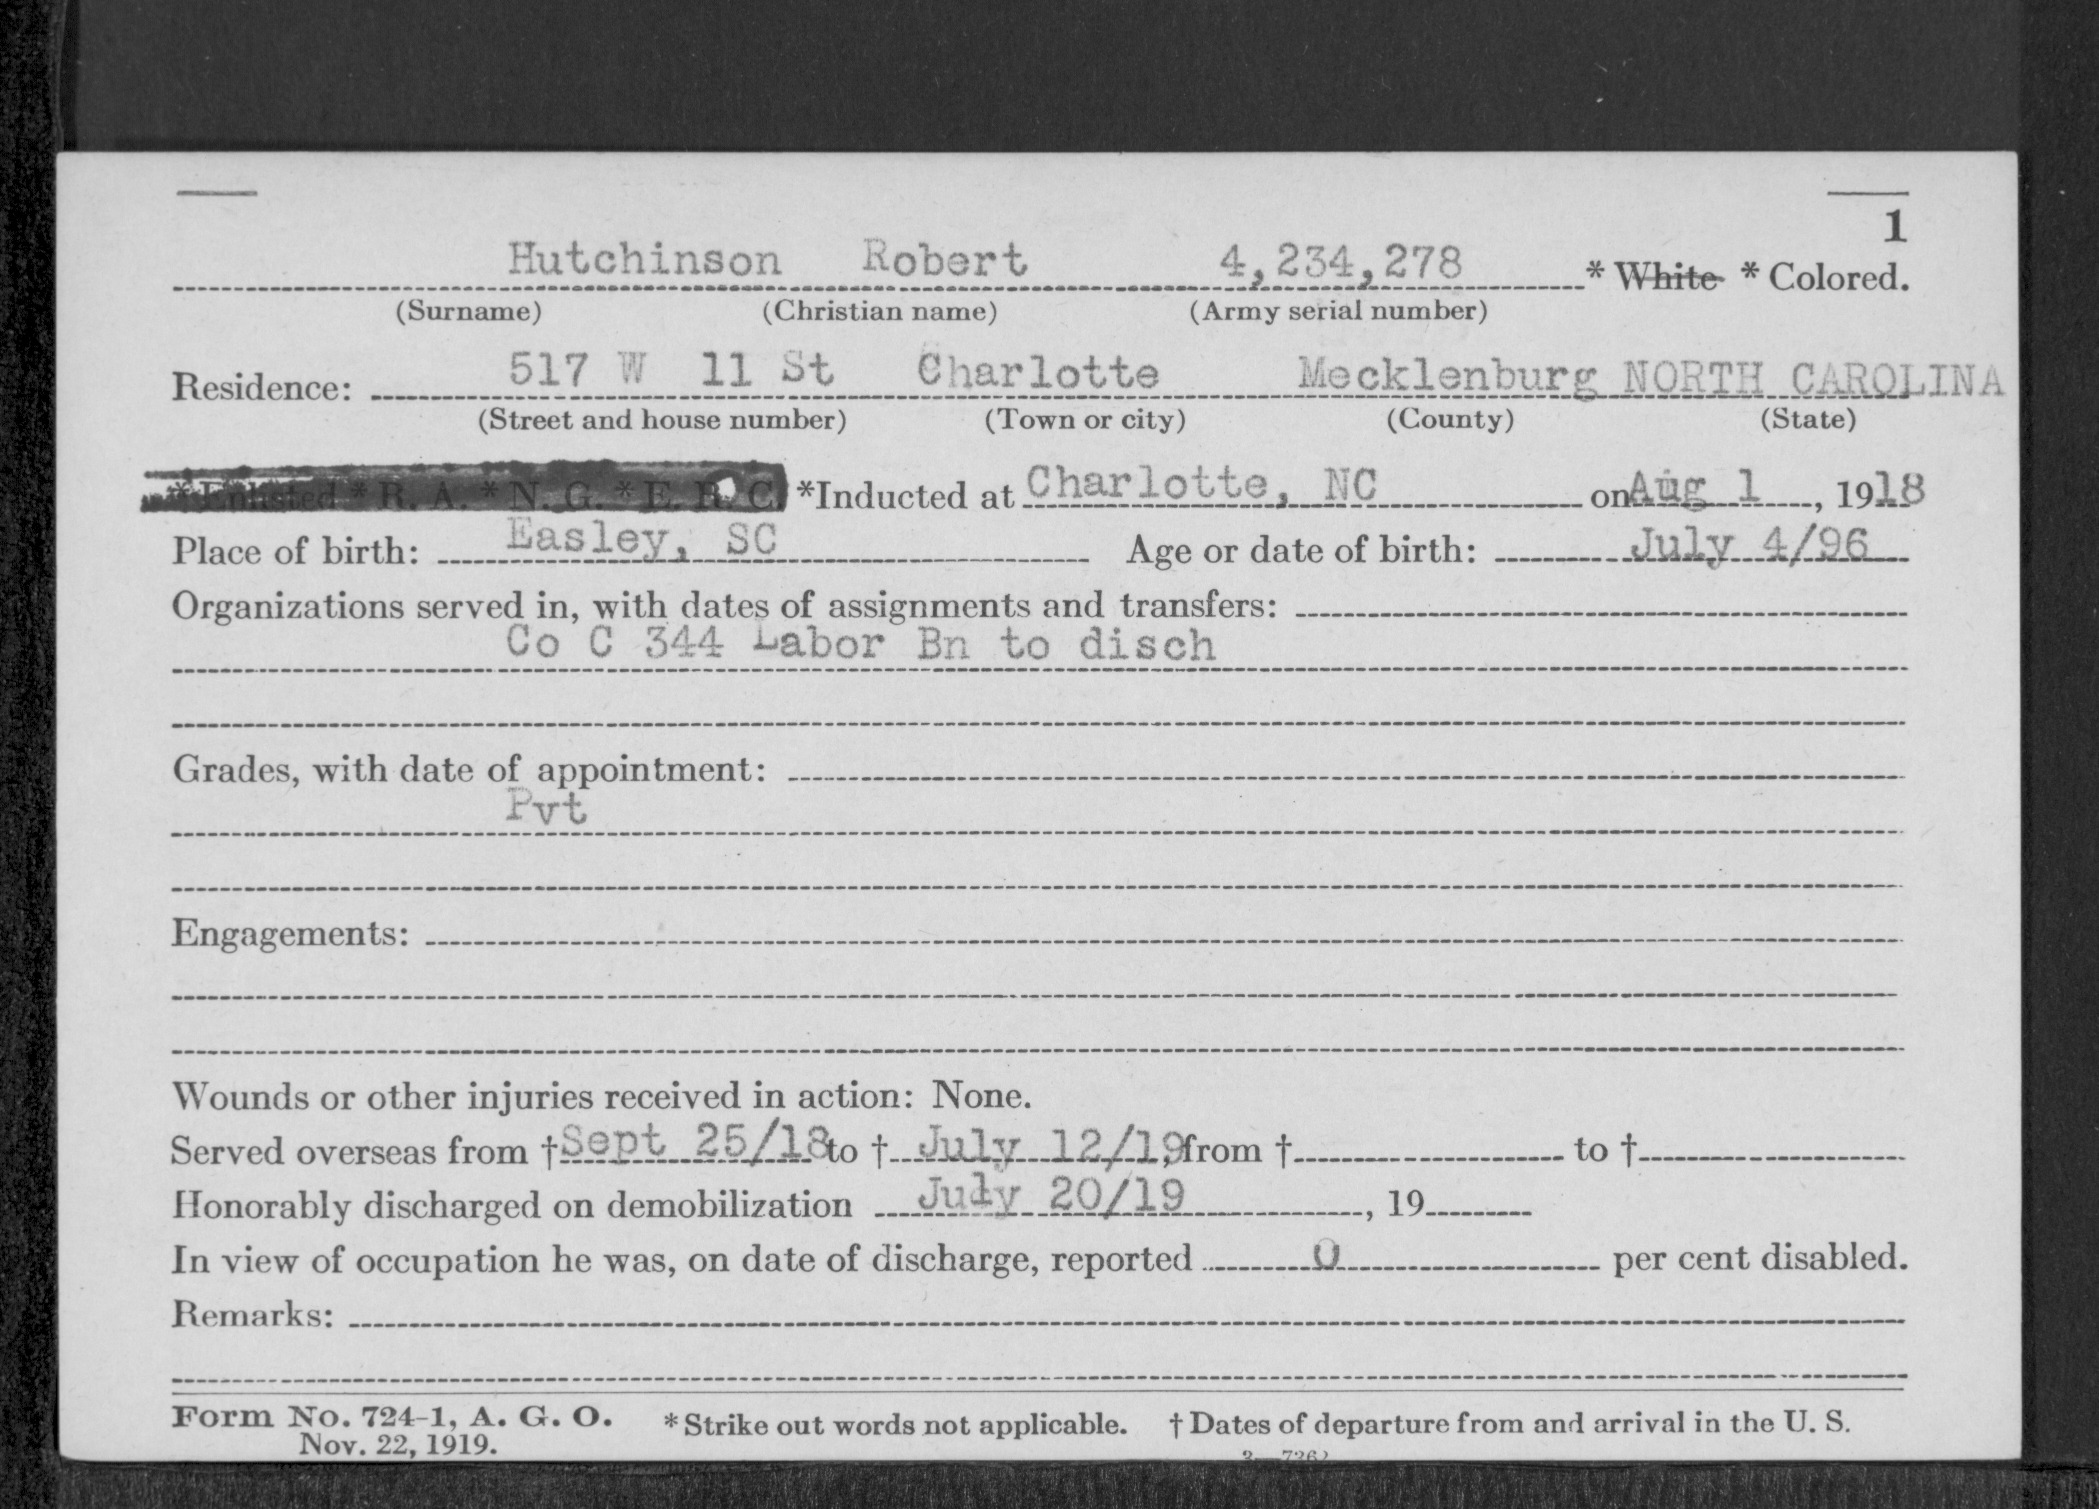 1
Hutchinson Robert 4,234,278 * White * Colored.
(Surname) (Christian name) (Army serial number)
Residence: 517 W 11 St Charlotte Mecklenburg NORTH CAROLINA
(Street and house number) (Town or city) (County) (State)
* Enlisted * R. A. * N. G. * E. R. C. *Inducted at Charlotte, NC on Aug 1, 1918
Place of birth: Easley, SC Age or date of birth: July 4/96
Organizations served in, with dates of assignments and transfers:
Co C 344 Labor Bn to disch
Grades, with date of appointment:
Pvt
Engagements:
Wounds or other injuries received in action: None.
Served overseas from † Sept 25/18 to † July 12/19, from † to †
Honorably discharged on demobilization July 20/19, 19
In view of occupation he was, on date of discharge, reported 0 per cent disabled.
Remarks:
Form No. 724-1, A. G. O. * Strike out words not applicable. † Dates of departure from and arrival in the U. S.
Nov. 22, 1919.
3—7262